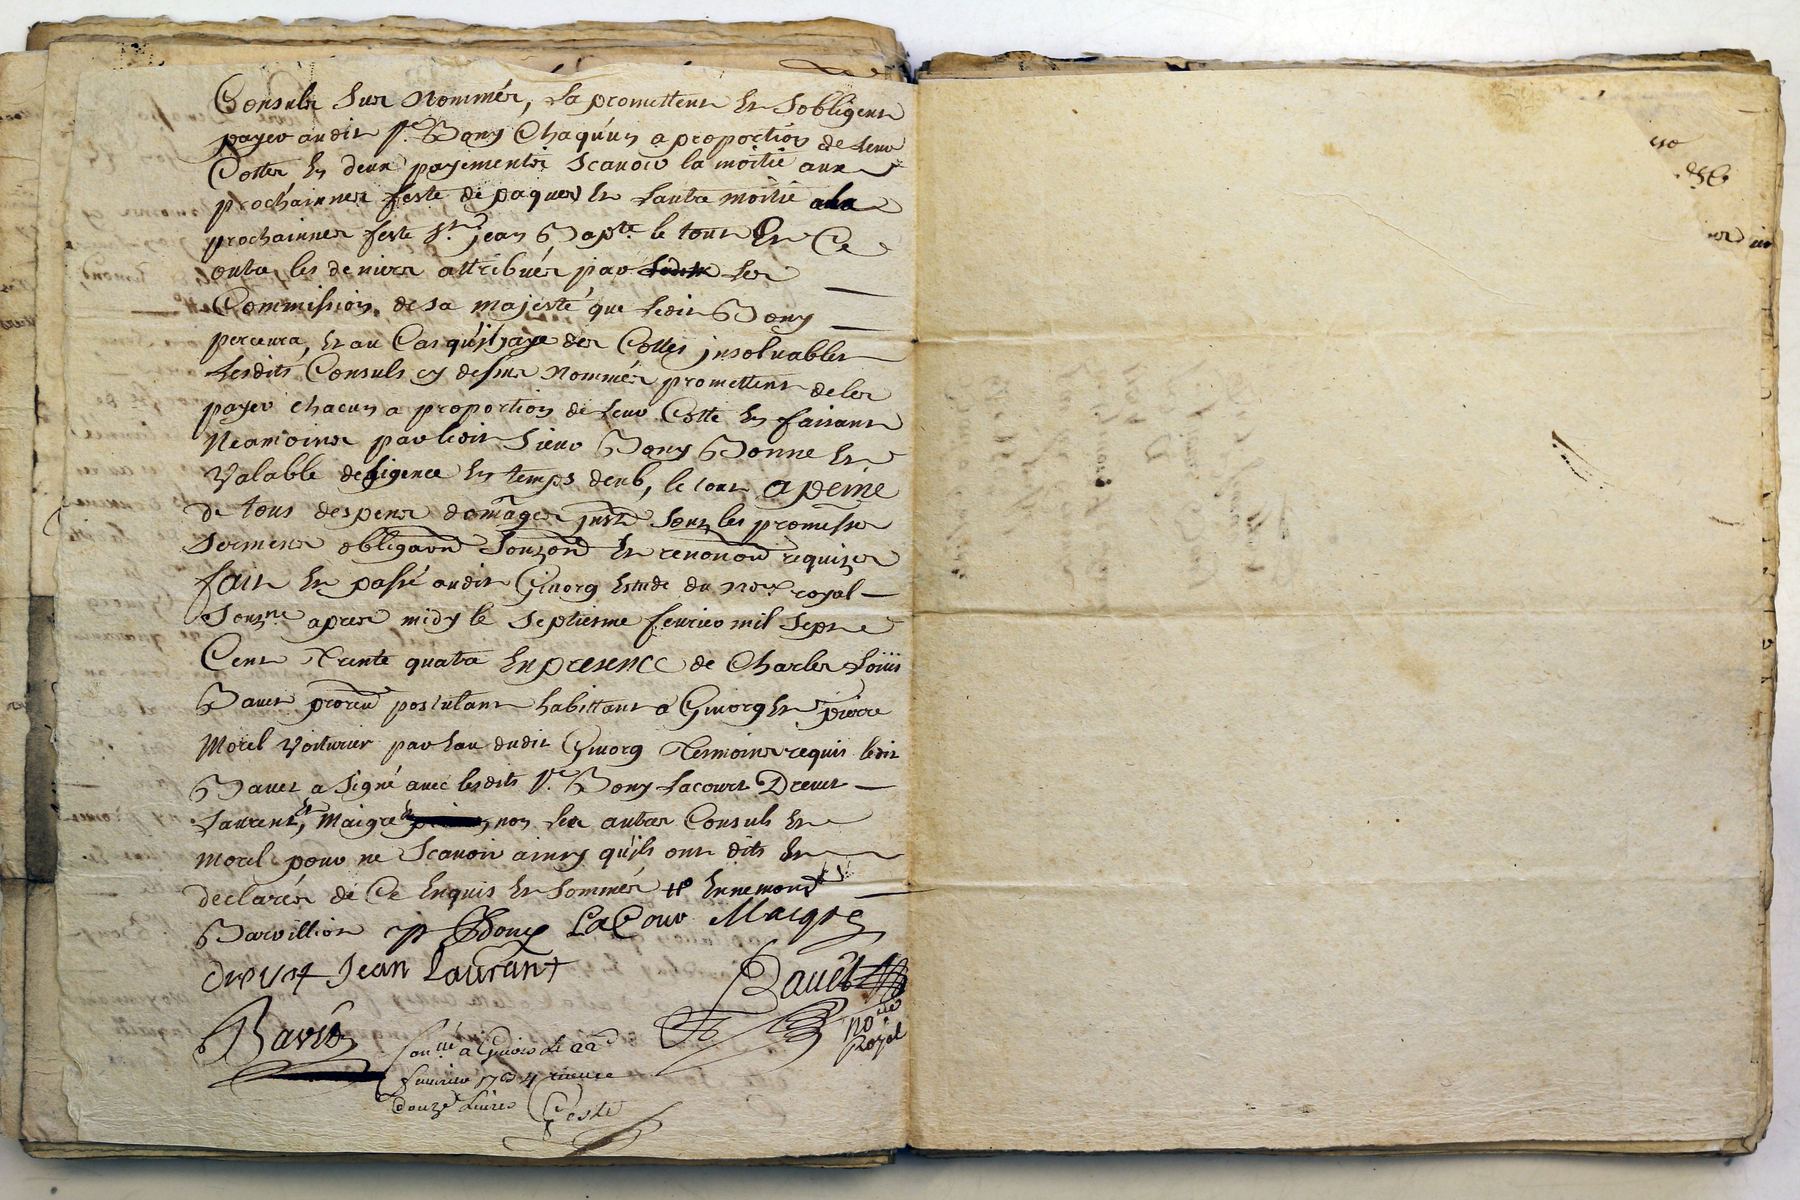 Consuls sus nommés, la promettent et sobligent
payer audit Sr. Bony Chaqu'un a proportion de leur
Cotte en deux payements scavoir la moitié aux
prochainnes feste de paques et lautre moitié a la
prochainnes feste St. jean Bapte. le tout et Ce
outre les deniers attribués par les
Commission de sa majesté que ledit Bony
percevra, et au Cas qu'il y aye des Cottes insoluables
Lesdits Consuls cy dessus nommés promettent de les
payer chacun a proportion de leur Cotte en faisant
Neamoins par ledit Sieur Bony Bonne et
Valable deligence en temps deub, le tout a peine
de tous despens domages sous les promesse
serment obligaon requizes
fait et passé audit Givorg estude du nore. royal
souzne. apres midy le septiesme feurier mil sept
Cent Trente quatre en presence de Charles Loüis
Bauet postulant habittant a Givorg et pierre
Morel voiturier par eau dudit Givorg Tesmoins requis ledit
Bauet a signé auec lesdits Sr. Bony Lacourt Dreuet
Laurent, et Maigre non les autres Consuls et
Morel pour ne Scauoir ainsy qu'ils ont dits et
declarés de Ce enquis et sommés et Ennemond
Barvillion Bony LaCour Macgre
drevet Jean Laurant
Bauet
nore
Royal
a Givors le 22
feurier 1734 receue
douze liures